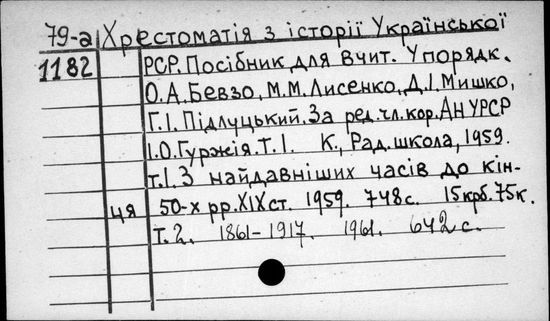 79-а Хрестоматія з історії Української
1182 РСР. Посібник для вчит. Упорядк.
О.А.Бевзо, М.М.Лисенко, Д.І.Мишко,
Г.І.Підлуцький. За ред. чл.кор. АН УРСР
І.О.Гуржія. Т.1. К., Рад. школа, 1959.
т.1. З найдавніших часів до кін-
ця 50-х рр. XIX ст. 1959. 748 с. 15 крб. 75 к.
Т. 2. 1861-1917. 1961. 642 с.